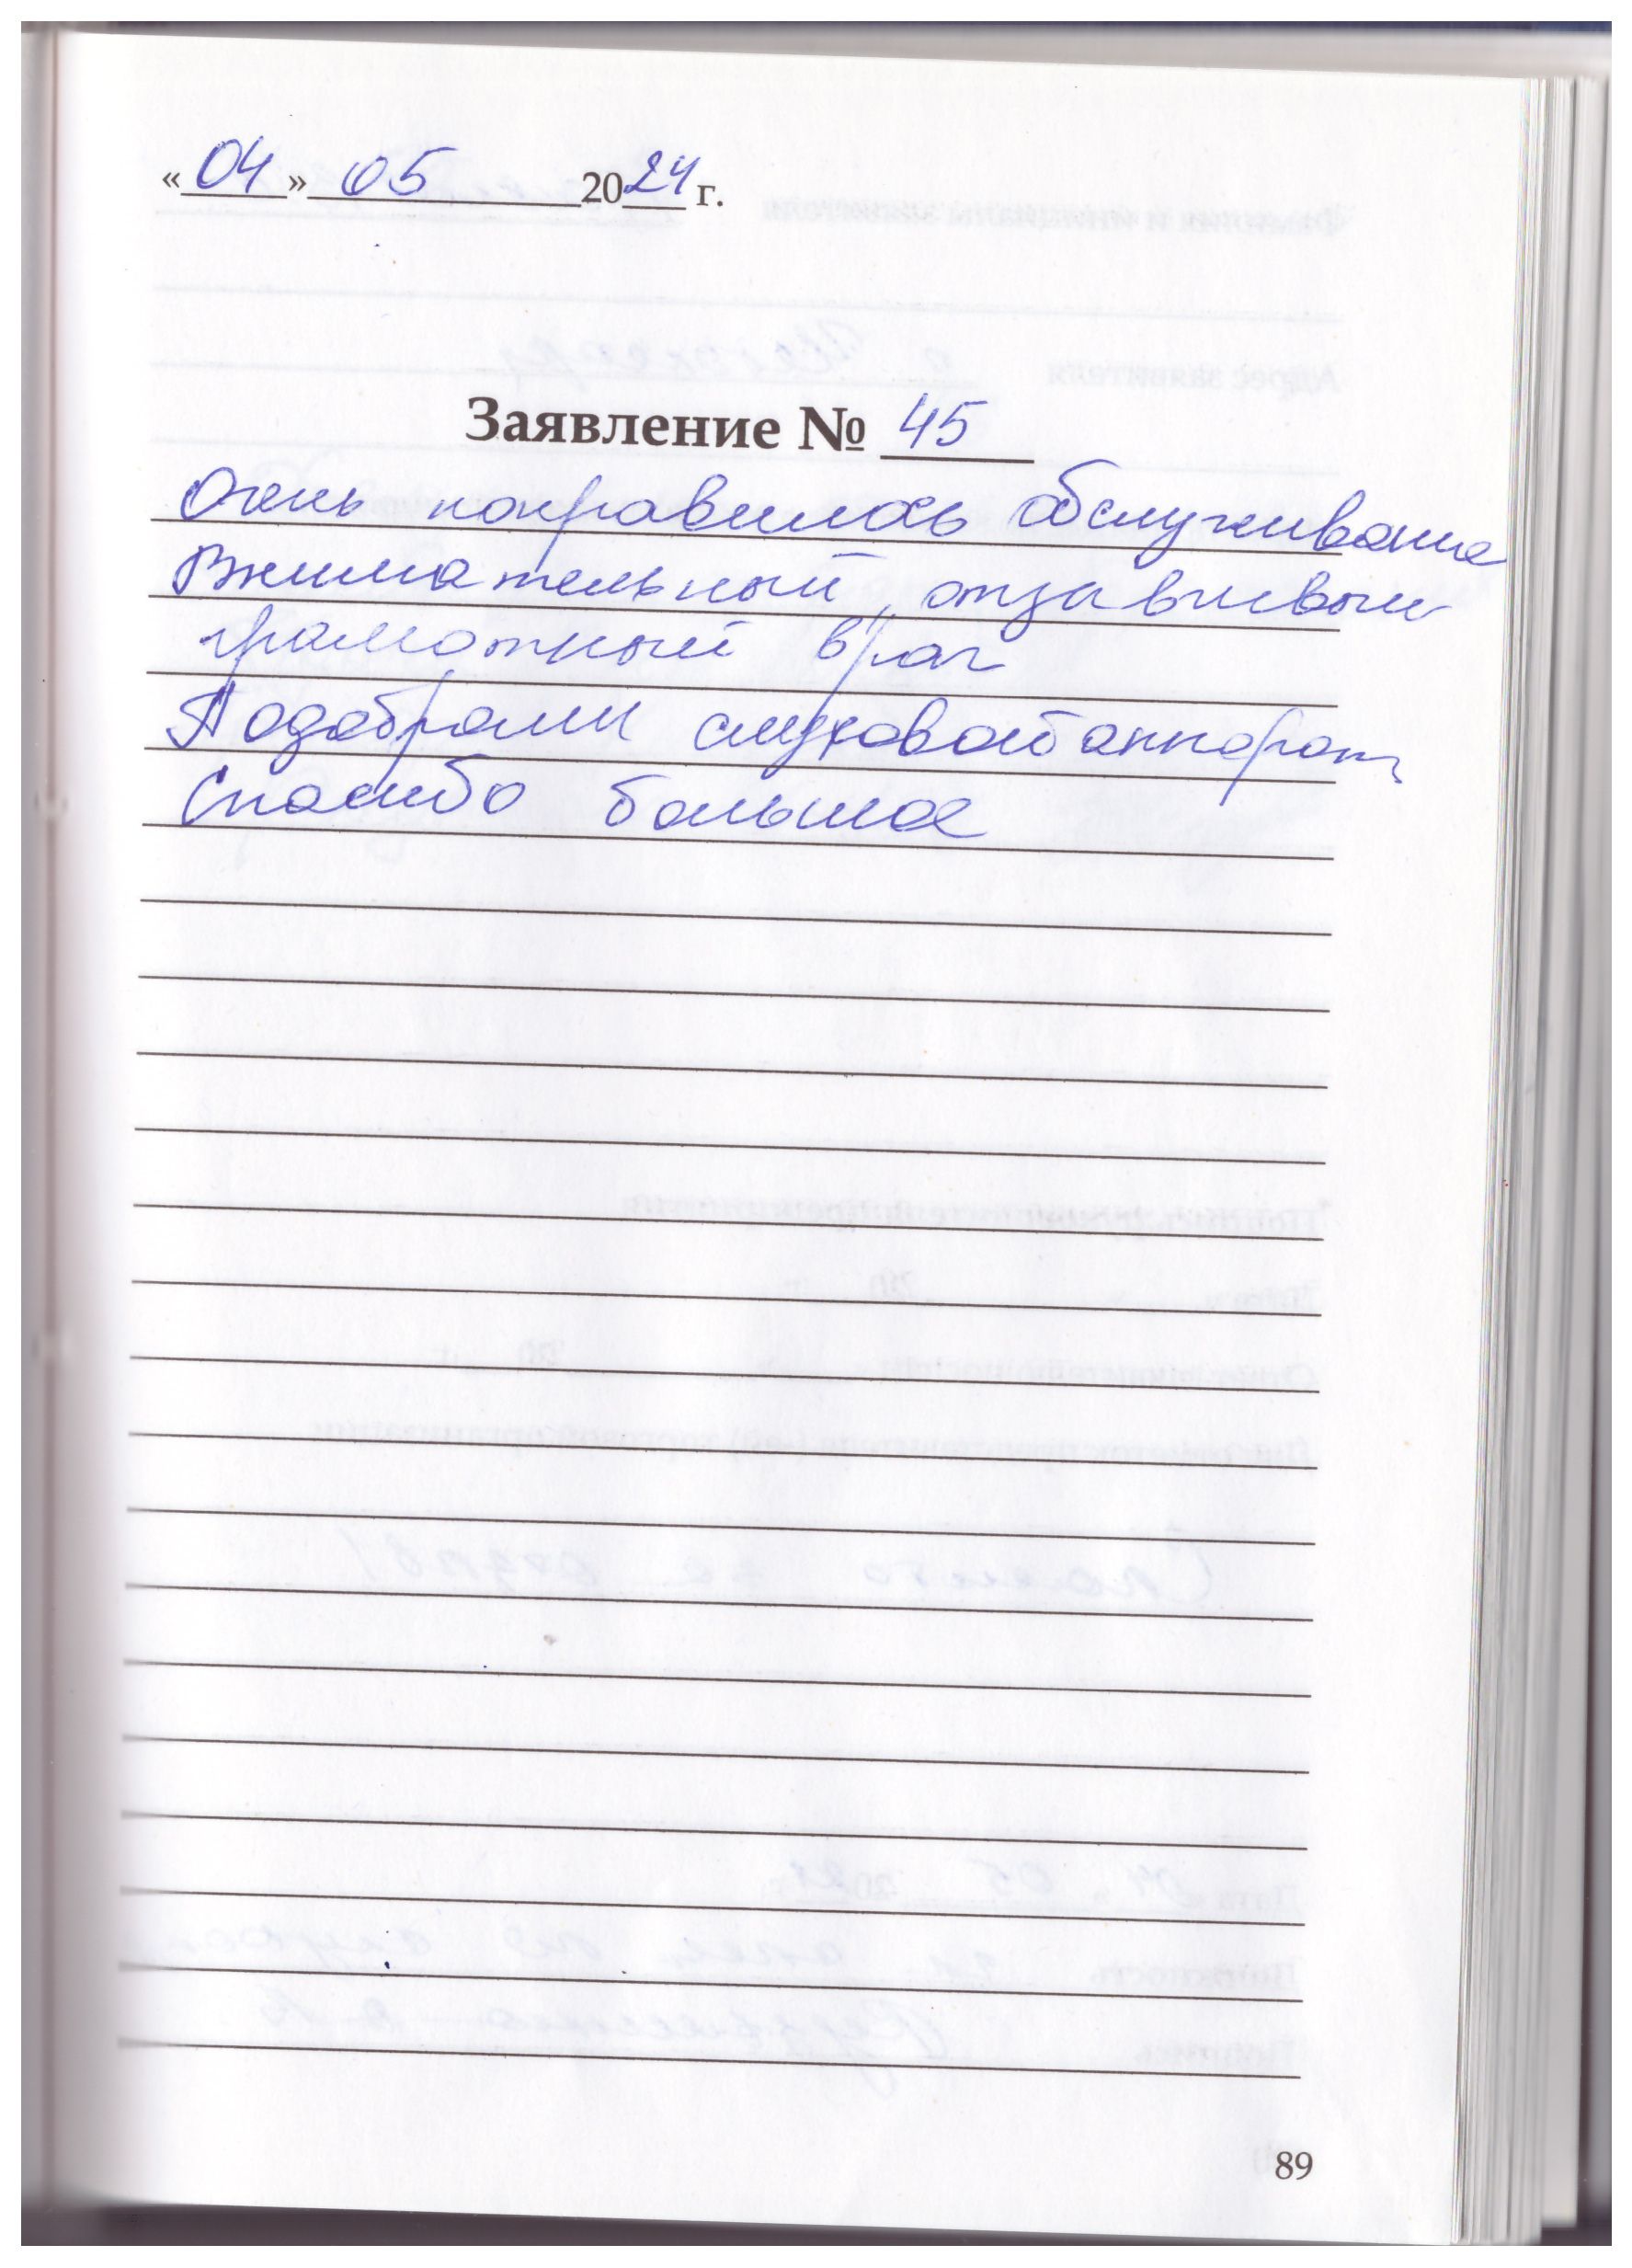 «04» 05 2024 г.
Заявление № 45
Очень понравилось обслуживание
Внимательный, отзавчивый
грамотный врач
Подобрали слуховой аппарат,
Спасибо большое
89